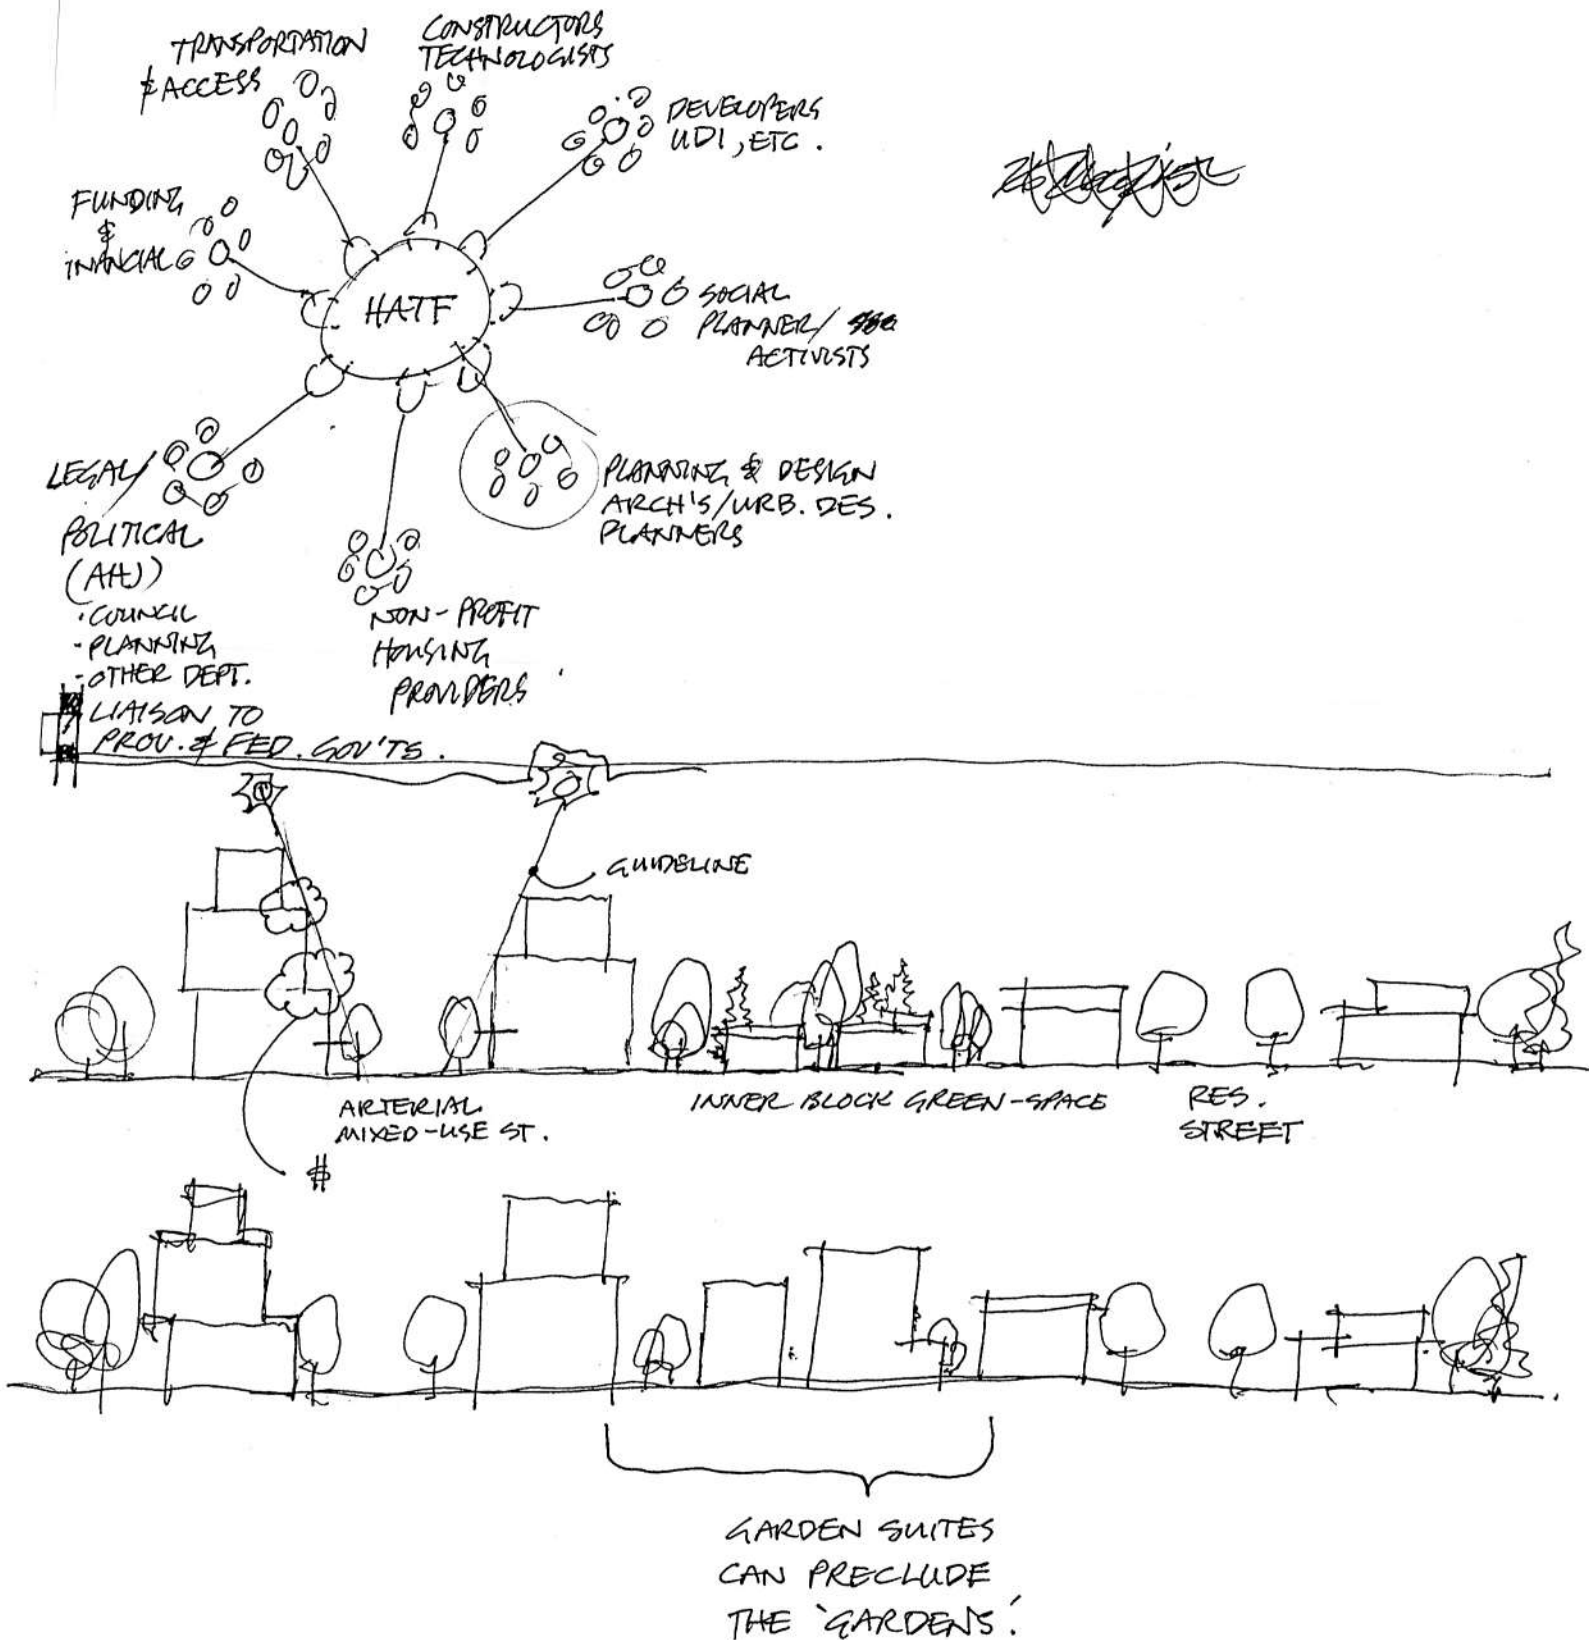 TRANSPORTATION
& ACCESS
CONSTRUCTORS
TECHNOLOGISTS
DEVELOPERS
UDI, ETC.
FUNDING
&
FINANCIAL
HATF
SOCIAL
PLANNER/
ACTIVISTS
LEGAL/
POLITICAL
(AHJ)
· COUNCIL
- PLANNING
- OTHER DEPT.
LIAISON TO
PROV. & FED. GOV'TS.
PLANNING & DESIGN
ARCH'S/URB. DES.
PLANNERS
NON-PROFIT
HOUSING
PROVIDERS
GUIDELINE
ARTERIAL
MIXED-USE ST.
INNER BLOCK GREEN-SPACE
RES.
STREET
GARDEN SUITES
CAN PRECLUDE
THE 'GARDENS'.